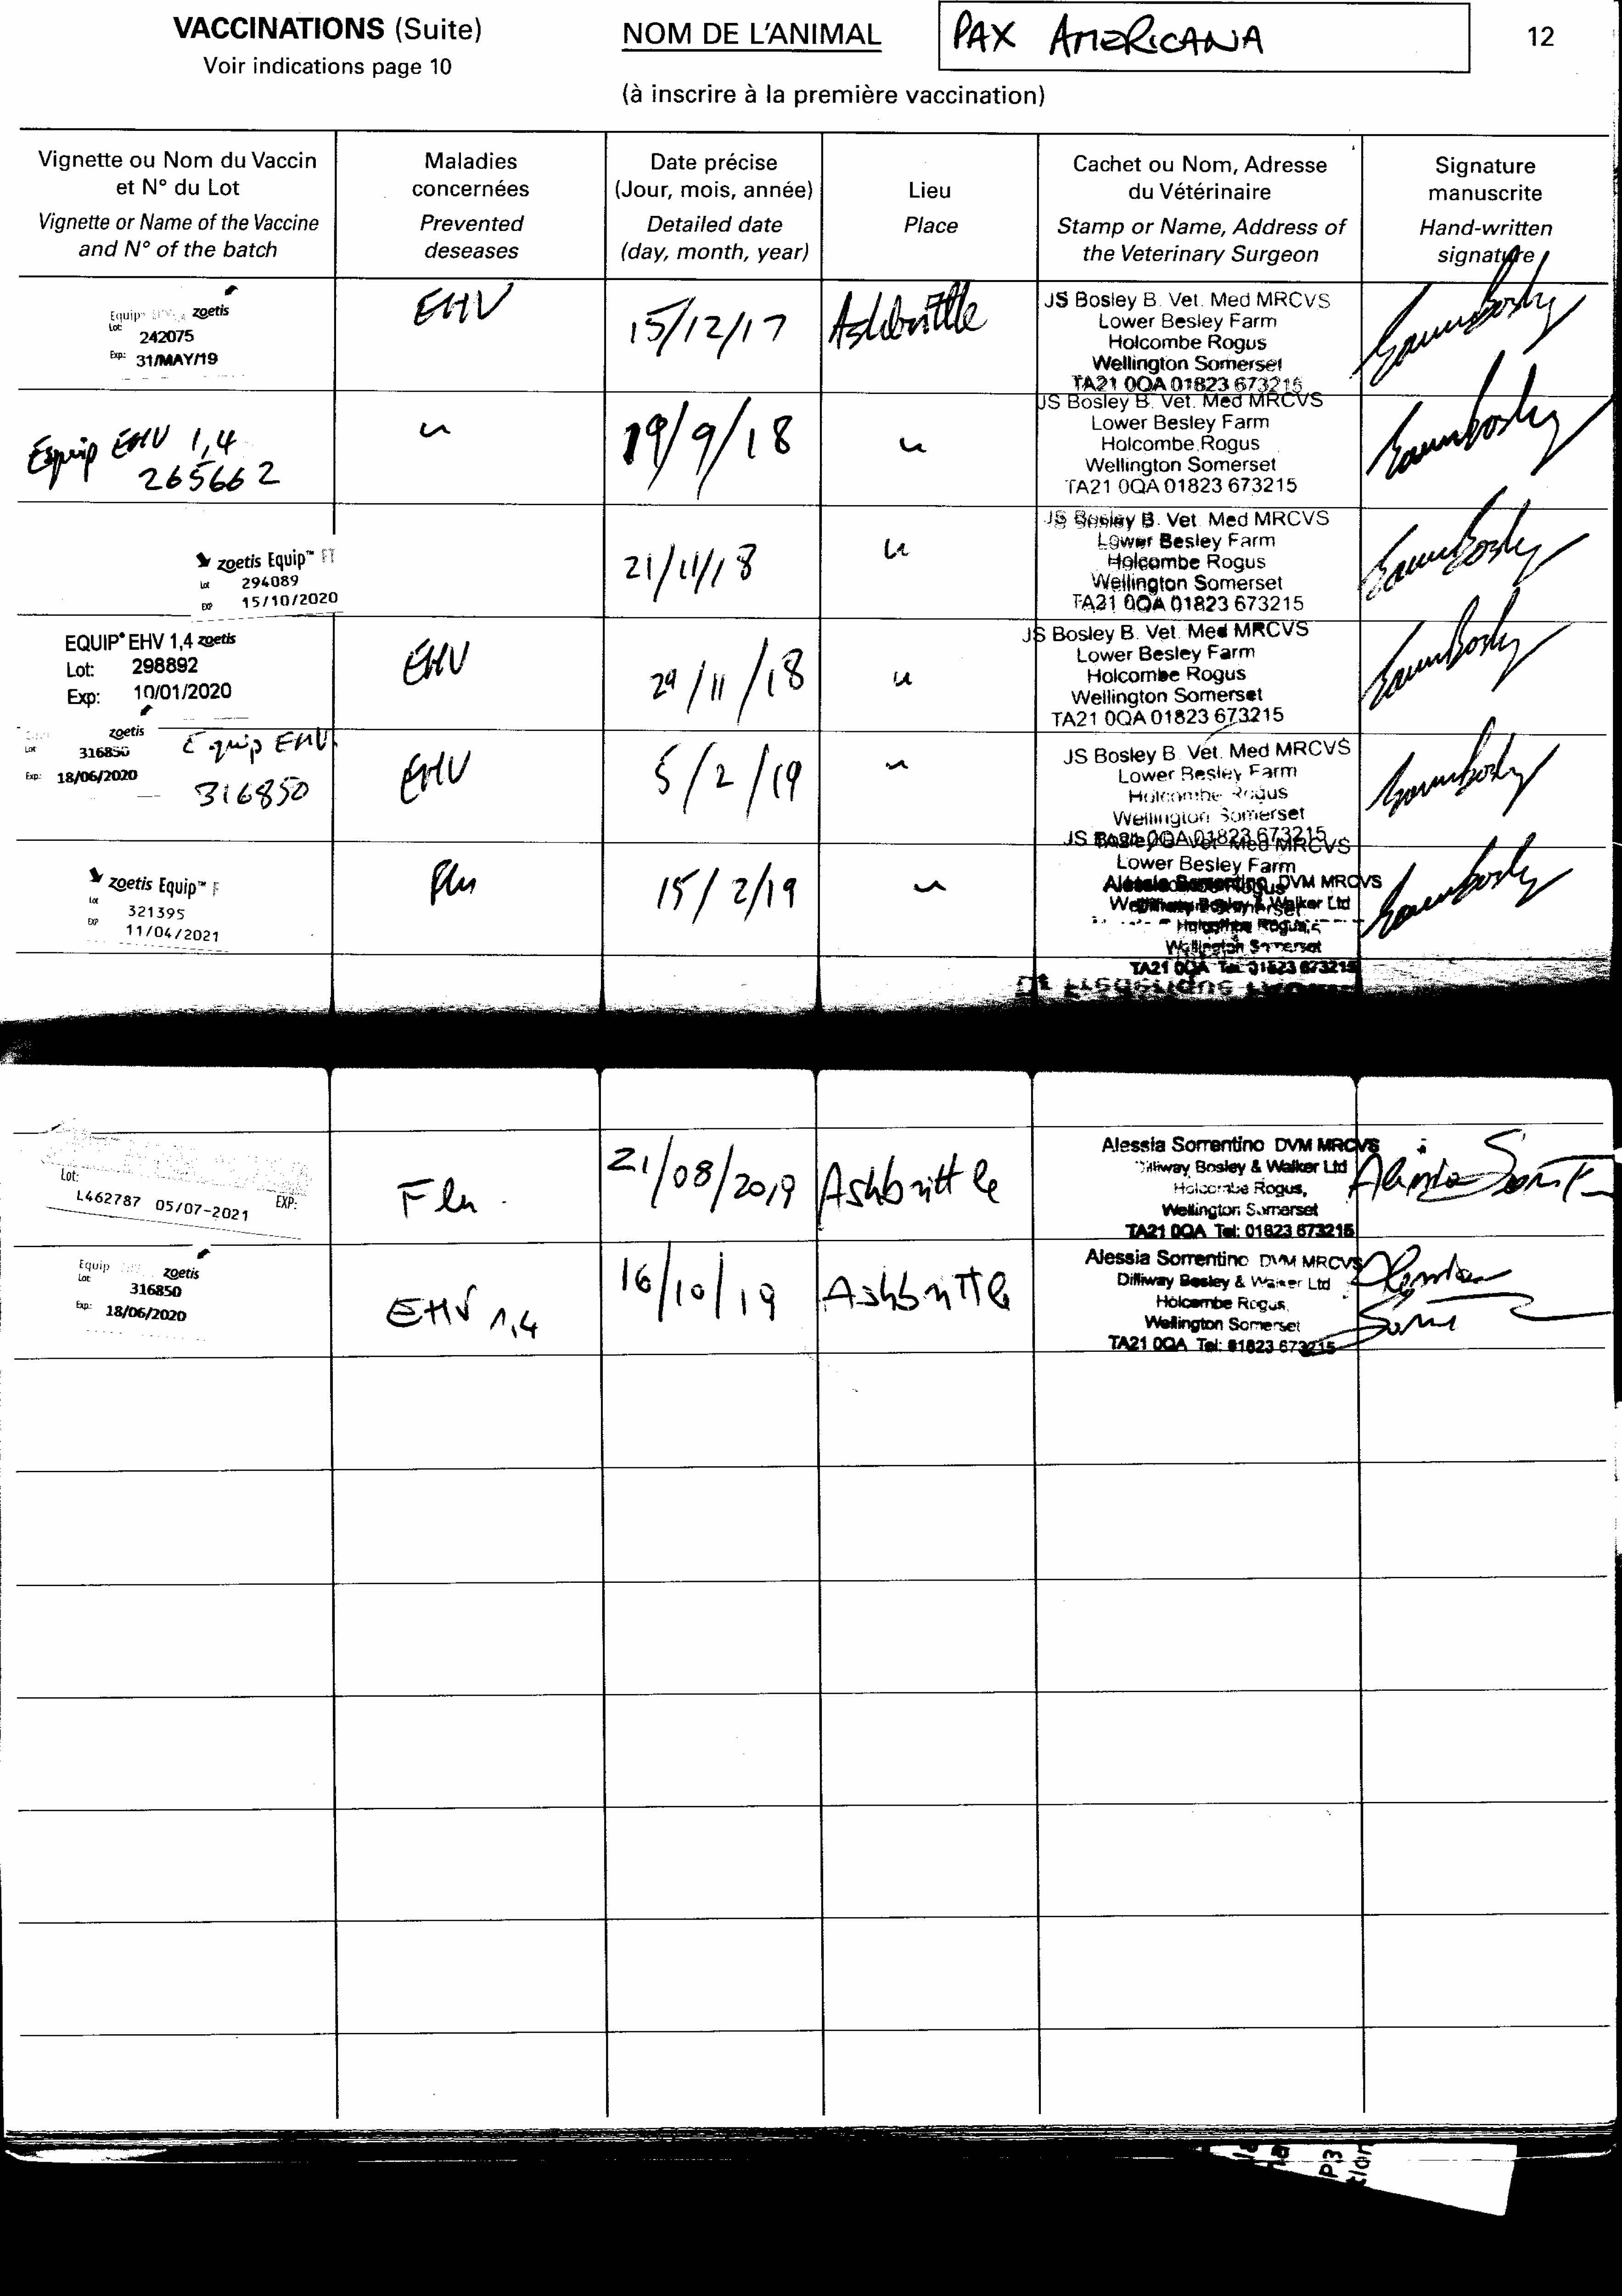 VACCINATIONS (Suite)
Voir indications page 10
NOM DE L'ANIMAL
PAX AMERICANA
12
(à inscrire à la première vaccination)
Vignette ou Nom du Vaccin
et N° du Lot
Vignette or Name of the Vaccine
and N° of the batch
Maladies
concernées
Prevented
deseases
Date précise
(Jour, mois, année)
Detailed date
(day, month, year)
Lieu
Place
Cachet ou Nom, Adresse
du Vétérinaire
Stamp or Name, Address of
the Veterinary Surgeon
Signature
manuscrite
Hand-written
signature
Equip zoetis
Lot: 242075
Exp: 31/MAY/19
EHV
15/12/17
Ashbrittle
JS Bosley B. Vet. Med MRCVS
Lower Besley Farm
Holcombe Rogus
Wellington Somerset
TA21 0QA 01823 673215
Equip EHV 1,4
265662
19/9/18
JS Bosley B. Vet. Med MRCVS
Lower Besley Farm
Holcombe Rogus
Wellington Somerset
TA21 0QA 01823 673215
zoetis Equip™ FT
Lot 294089
EXP 15/10/2020
21/11/18
JS Bosley B. Vet. Med MRCVS
Lower Besley Farm
Holcombe Rogus
Wellington Somerset
TA21 0QA 01823 673215
EQUIP® EHV 1,4 zoetis
Lot: 298892
Exp: 10/01/2020
EHV
29/11/18
JS Bosley B. Vet. Med MRCVS
Lower Besley Farm
Holcombe Rogus
Wellington Somerset
TA21 0QA 01823 673215
zoetis
Lot 316850
Exp: 18/06/2020
Equip EHV
316850
EHV
5/2/19
JS Bosley B. Vet. Med MRCVS
Lower Besley Farm
Holcombe Rogus
Wellington Somerset
TA21 0QA 01823 673215
zoetis Equip™ F
Lot 321395
EXP 11/04/2021
Flu
15/2/19
JS Bosley B. Vet. Med MRCVS
Lower Besley Farm
Alessia Sorrentino DVM MRCVS
Holcombe Rogus
Wellington Somerset
TA21 0QA Tel: 01823 673215
Lot:
L462787 05/07-2021 EXP:
Flu.
21/08/2019
Ashbrittle
Alessia Sorrentino DVM MRCVS
Dilliway Bosley & Walker Ltd
Holcombe Rogus,
Wellington Somerset
TA21 0QA Tel: 01823 673215
Equip zoetis
Lot: 316850
Exp: 18/06/2020
EHV 1,4
16/10/19
Ashbrittle
Alessia Sorrentino DVM MRCVS
Dilliway Bosley & Walker Ltd
Holcombe Rogus,
Wellington Somerset
TA21 0QA Tel: 01823 673215